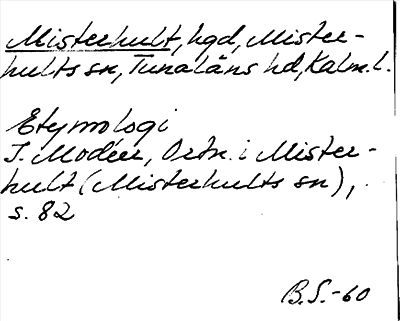 Misterhult, hgd, Mister-
hults sn, Tunaläns hd, Kalm. l.
Etymologi
I. Modéer, Ortn. i Mister-
hult (Misterhults sn),
s. 82
B.S.-60